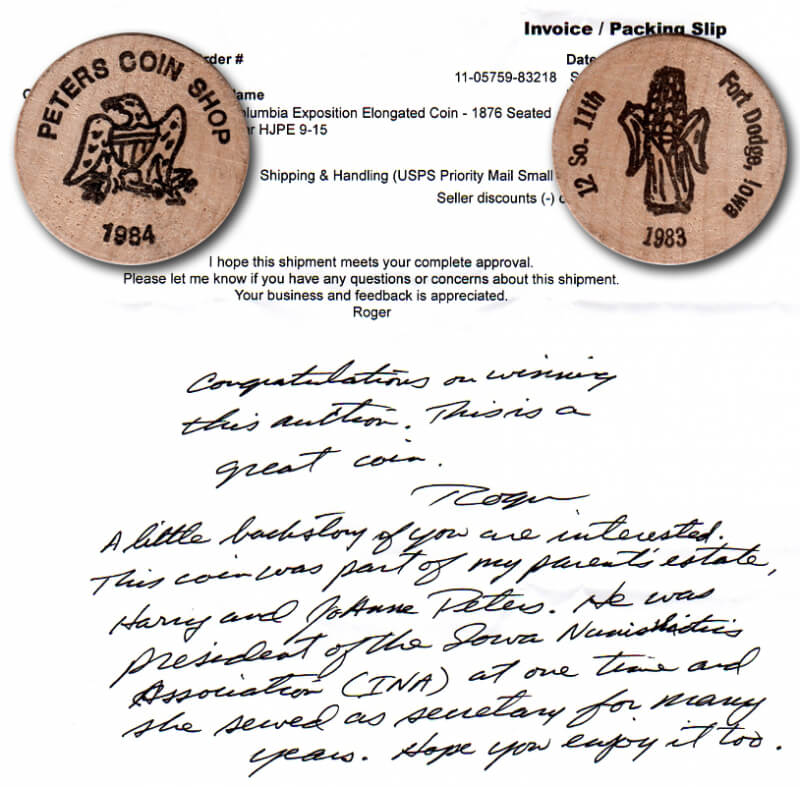 Invoice / Packing Slip
PETERS COIN SHOP
1984
12 So. 11th
Fort Dodge, Iowa
1983
rder #
Date
11-05759-83218
ame
lumbia Exposition Elongated Coin - 1876 Seated
r HJPE 9-15
Shipping & Handling (USPS Priority Mail Small
Seller discounts (-)
I hope this shipment meets your complete approval.
Please let me know if you have any questions or concerns about this shipment.
Your business and feedback is appreciated.
Roger
Congratulations on winning
this auction. This is a
great coin.
Roger
A little backstory if you are interested.
This coin was part of my parent's estate,
Harry and JoAnne Peters. He was
president of the Iowa Numismatics
Association (INA) at one time and
she served as secretary for many
years. Hope you enjoy it too.